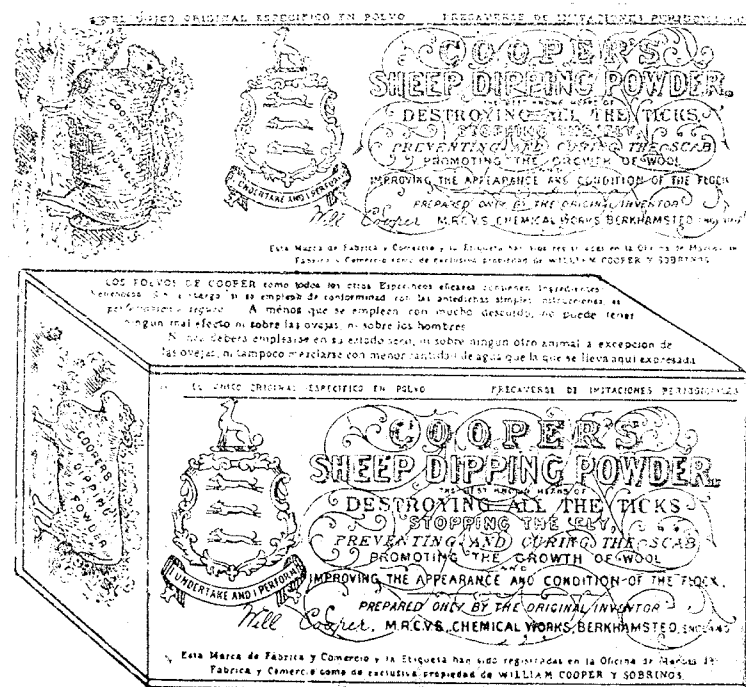 EL ÚNICO ORIGINAL ESPECIFICO EN POLVO PRECAVERSE DE IMITACIONES
COOPER'S
DIPPING
POWDER
COOPER'S
SHEEP DIPPING POWDER.
THE BEST KNOWN MEANS OF
DESTROYING ALL THE TICKS
STOPPING THE FLY,
PREVENTING AND CURING THE SCAB
PROMOTING THE GROWTH OF WOOL
AND
IMPROVING THE APPEARANCE AND CONDITION OF THE FLOCK
UNDERTAKE AND I PERFORM
PREPARED ONLY BY THE ORIGINAL INVENTOR
Will Cooper M.R.C.V.S., CHEMICAL WORKS, BERKHAMSTED, ENGLAND
Esta Marca de Fábrica y Comercio y la Etiqueta han sido registradas en la Oficina de Marcas de
Fábrica y Comercio como de exclusiva propiedad de WILLIAM COOPER Y SOBRINOS.
LOS POLVOS DE COOPER como todos los otros Específicos eficaces contienen Ingredientes
Venenosos. Sin embargo si se emplean de conformidad con las antedichas simples instrucciones, es
seguro. A ménos que se empleen con mucho descuido, no puede tener
ningun mal efecto ni sobre las ovejas, ni sobre los hombres
No deberá emplearse en su estado seco, ni sobre ningun otro animal a excepción de
las ovejas, ni tampoco mezclarse con menor cantidad de agua que la que se lleva aquí expresada
EL UNICO ORIGINAL ESPECIFICO EN POLVO PRECAVERSE DE IMITACIONES
COOPERS
DIPPING
POWDER
COOPER'S
SHEEP DIPPING POWDER.
THE BEST KNOWN MEANS OF
DESTROYING ALL THE TICKS
STOPPING THE FLY,
PREVENTING AND CURING THE SCAB
PROMOTING THE GROWTH OF WOOL
AND
IMPROVING THE APPEARANCE AND CONDITION OF THE FLOCK,
I UNDERTAKE AND I PERFORM
PREPARED ONLY BY THE ORIGINAL INVENTOR
Will Cooper, M.R.C.V.S., CHEMICAL WORKS, BERKHAMSTED, ENGLAND
Esta Marca de Fábrica y Comercio y la Etiqueta han sido registradas en la Oficina de Marcas de
Fábrica y Comercio como de exclusiva propiedad de WILLIAM COOPER Y SOBRINOS.